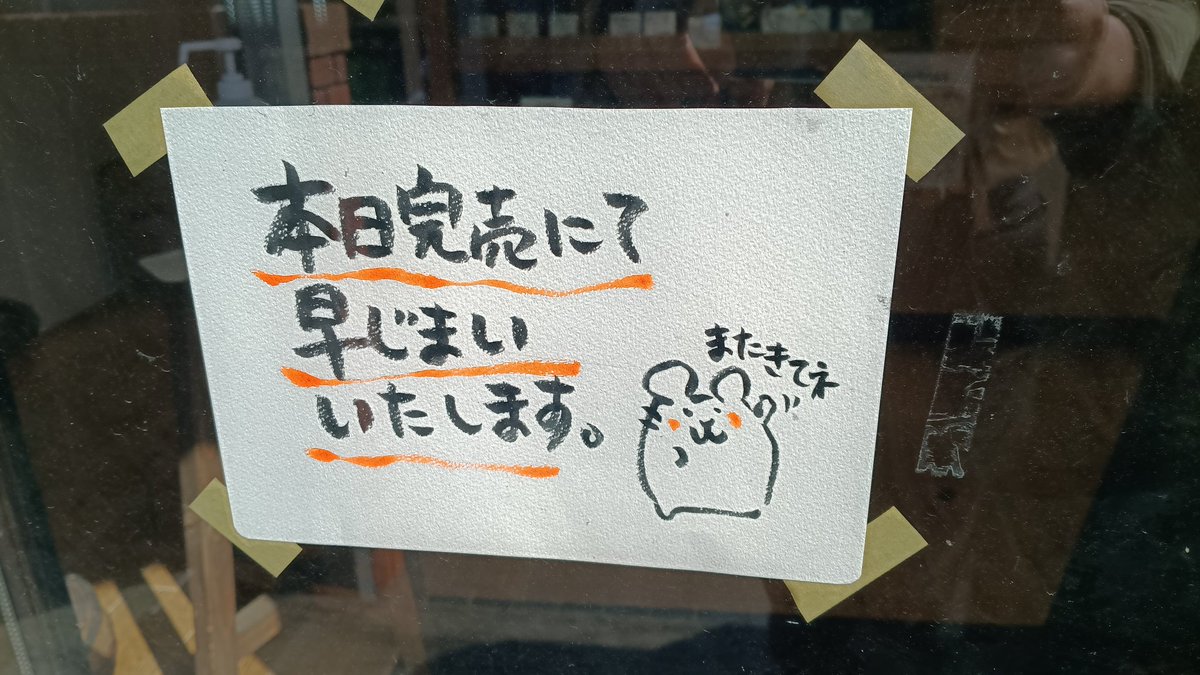 本日完売にて
早じまい
いたします。
またきてネ